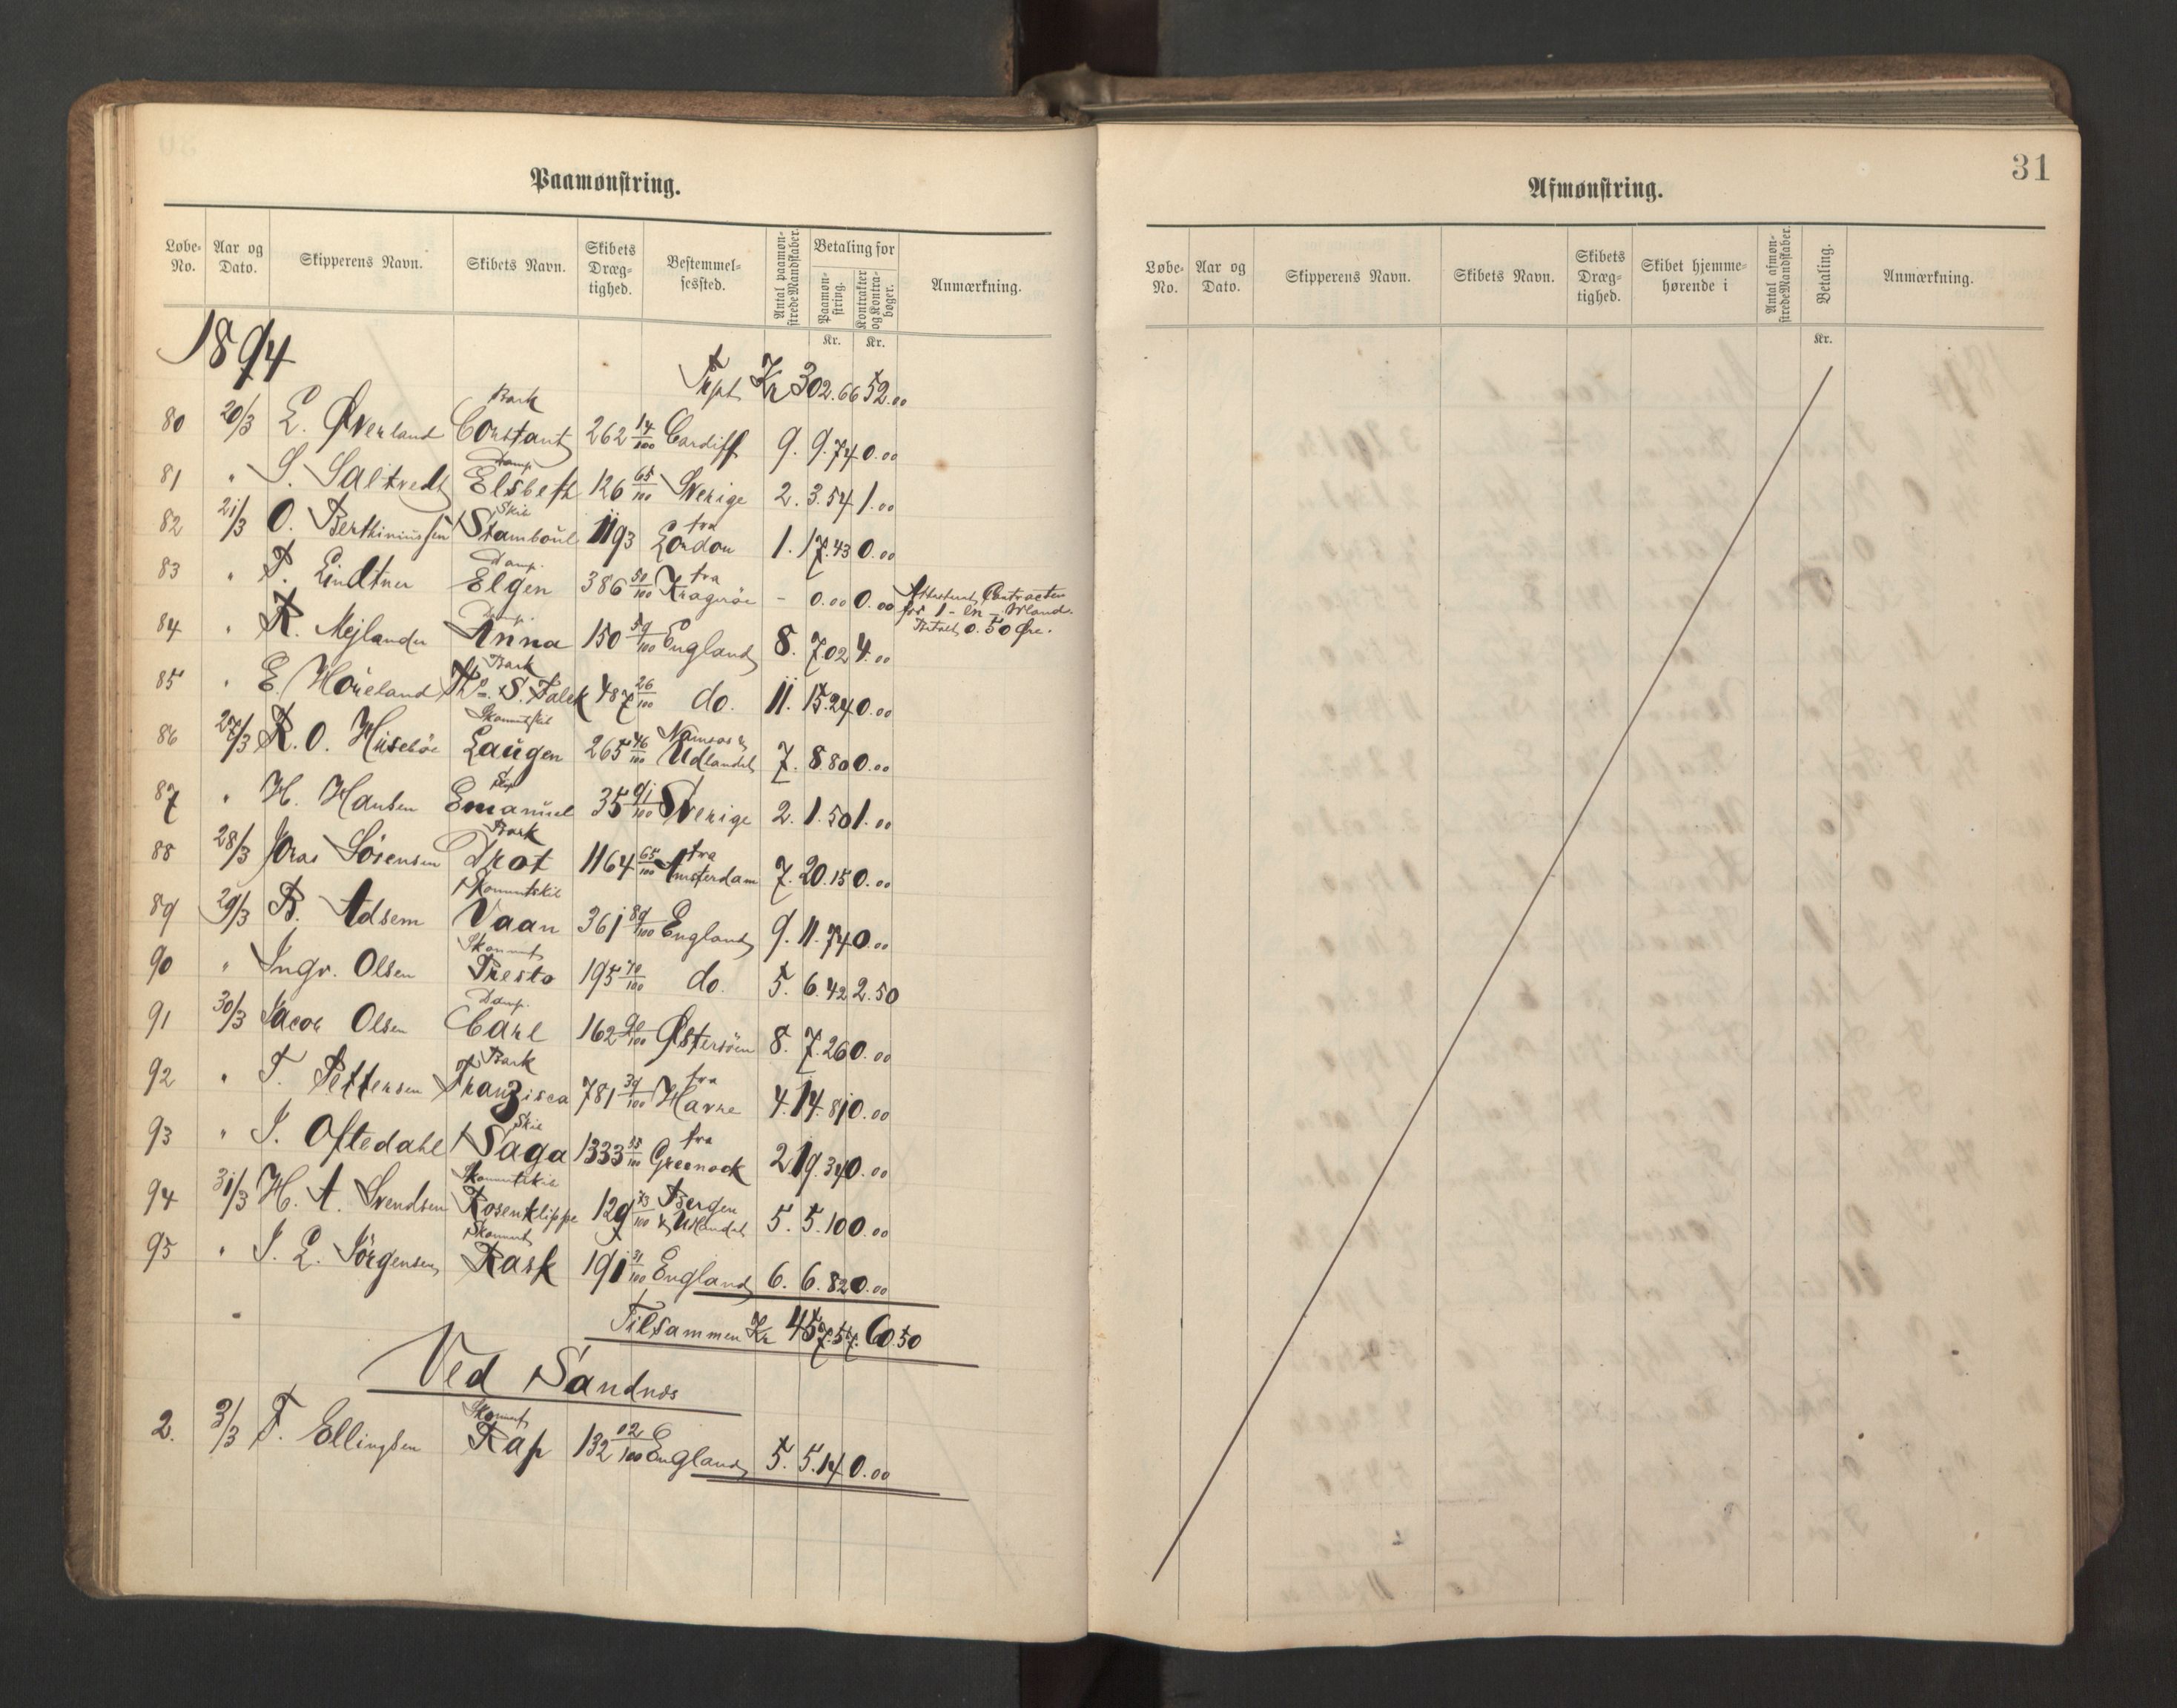 Paamønstring.
Løbe-No. Aar og Dato. Skipperens Navn. Skibets Navn. Skibets Dræg-tighed. Bestemmel-sessted. Antal paamøn-strede Mandskaber. Betaling for Paamøn-string. Kontrakter og Kontra-bøger. Anmærkning.
Kr. Kr.
1894
Trpt Kr 302.66 52.00
80 20/3 L. Øverland Bark Constant 262 14/100 Cardiff 9. 9.74 0.00
81 " S. Saltvedt Damp. Elsbeth 126 65/100 Sverige 2. 3.54 1.00
82 21/3 O. Berthiniussen Skib Stamboul 1193 fra London 1. 17.43 0.00
83 " T. Lindtner Damp. Elgen 386 50/100 fra Kragerøe - 0.00 0.00 Attesteret Contracten
for 1 - en - Mand.
Betalt 0.50 Øre.
84 " K. Mejlander Damp. Anna 150 59/100 England 8. 7.02 4.00
85 " E. Høieland Bark Th. S. Falck 487 26/100 do. 11. 15.24 0.00
86 27/3 K. O. Husebøe Skonnertskib Laugen 265 46/100 Namsos & Udlandet 7. 8.80 0.00
87 " H. Hansen Emanuel 35 91/100 Sverige 2. 1.50 1.00
88 28/3 Jonas Sörensen Bark Drot 1164 65/100 fra Amsterdam 7. 20.15 0.00
89 29/3 B. Adsem Skonnertskib Vaan 361 89/100 England 9. 11.74 0.00
90 " Ingv. Olsen Skonnert Presto 195 70/100 do. 5. 6.42 2.50
91 30/3 Jacob Olsen Damp. Carl 162 90/100 Østersöen 8. 7.26 0.00
92 " T. Pettersen Bark Franzisca 781 39/100 fra Havre 4. 14.81 0.00
93 " J. Oftedahl Skib Saga 1333 55/100 fra Greenock 2. 19.34 0.00
94 31/3 H. A. Svendsen Skonnertskib Rosenklippe 129 73/100 Bergen & Udlandet 5. 5.10 0.00
95 " J. L. Jörgensen Skonnert Rask 191 31/100 England 6. 6.82 0.00
Tilsammen Kr 457.57. 60.50
Ved Sandnæs
2. 3/3 T. Ellingsen Skonnert Rap 132 02/100 England 5. 5.14 0.00
31
Afmønstring.
Løbe-No. Aar og Dato. Skipperens Navn. Skibets Navn. Skibets Dræg-tighed. Skibet hjemme-hørende i Antal afmøn-strede Mandskaber. Betaling. Anmærkning.
Kr.